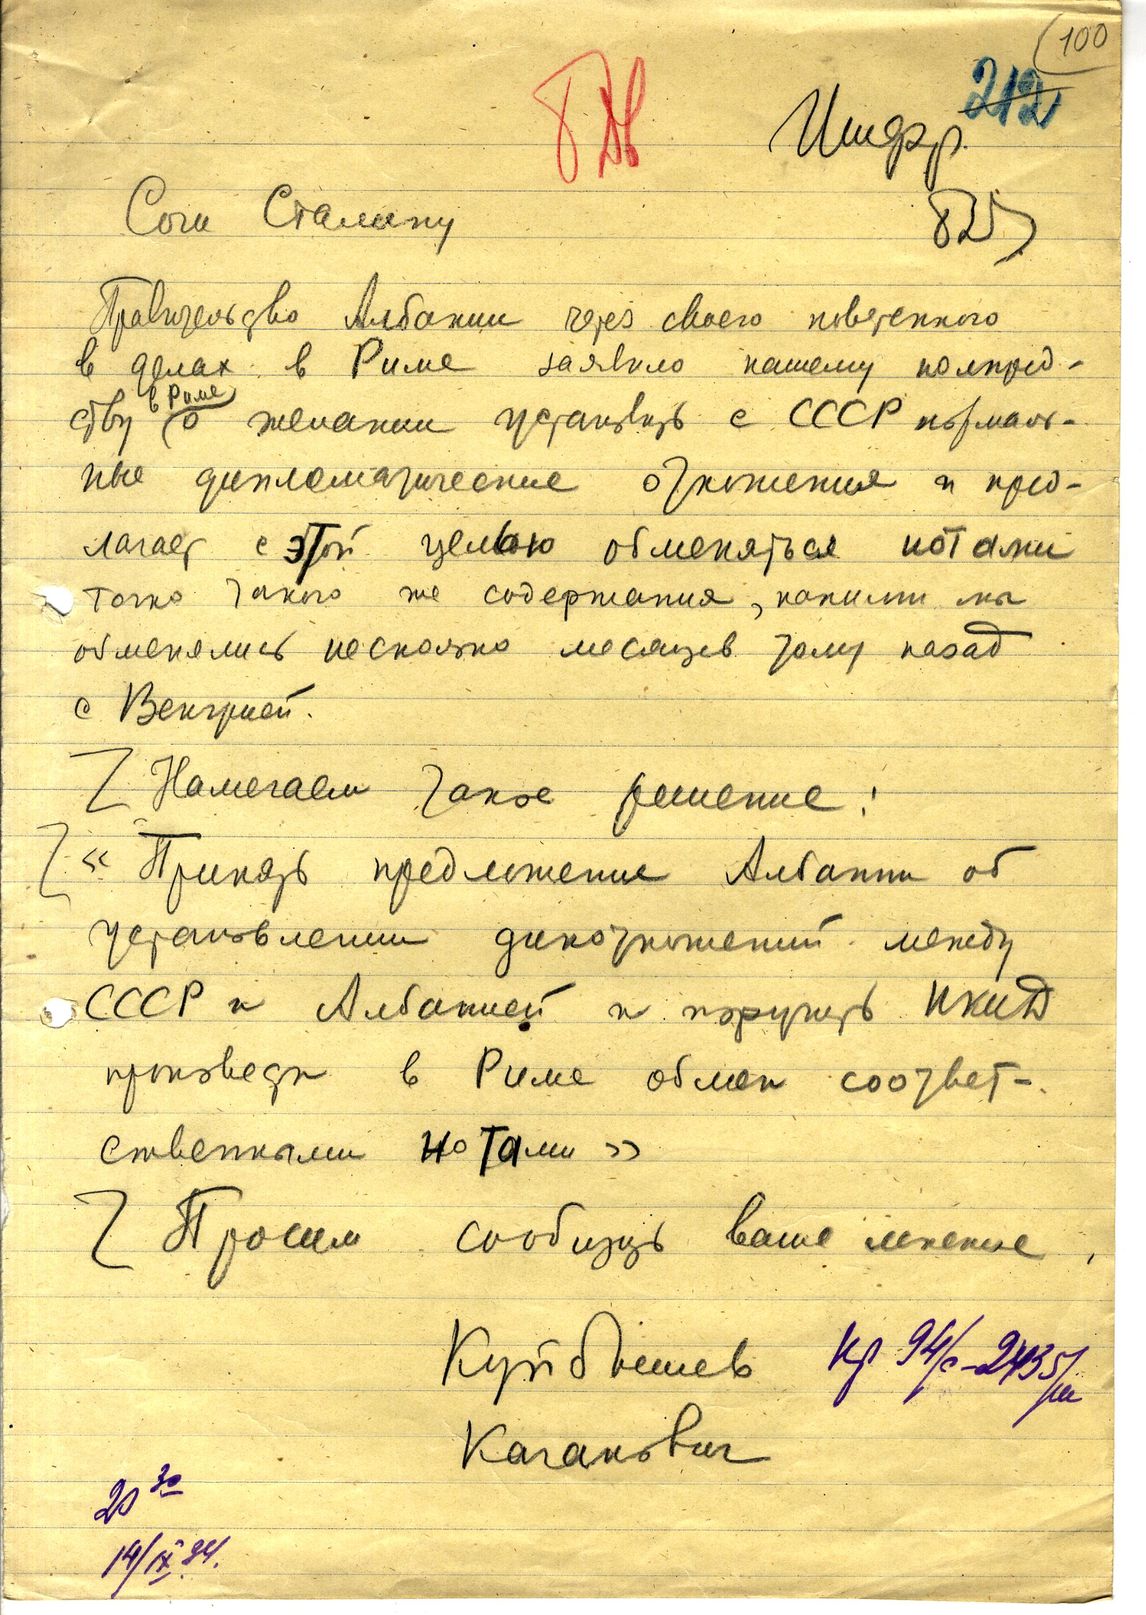 100
212
Шифр.
Сочи Сталину
Правительство Албании через своего поверенного
в делах в Риме заявило нашему полпред-
в Риме
ству о желании установить с СССР нормаль-
ные дипломатические отношения и пред-
лагает с этой целью обменяться нотами
точно такого же содержания, какими мы
обменялись несколько месяцев тому назад
с Венгрией.
Намечаем такое решение:
« Принять предложение Албании об
установлении дипотношений между
СССР и Албанией и поручить НКИД
произвести в Риме обмен соответ-
ственными нотами »
Просим сообщить ваше мнение.
Куйбышев
Каганович
20 30
14/IX 34.